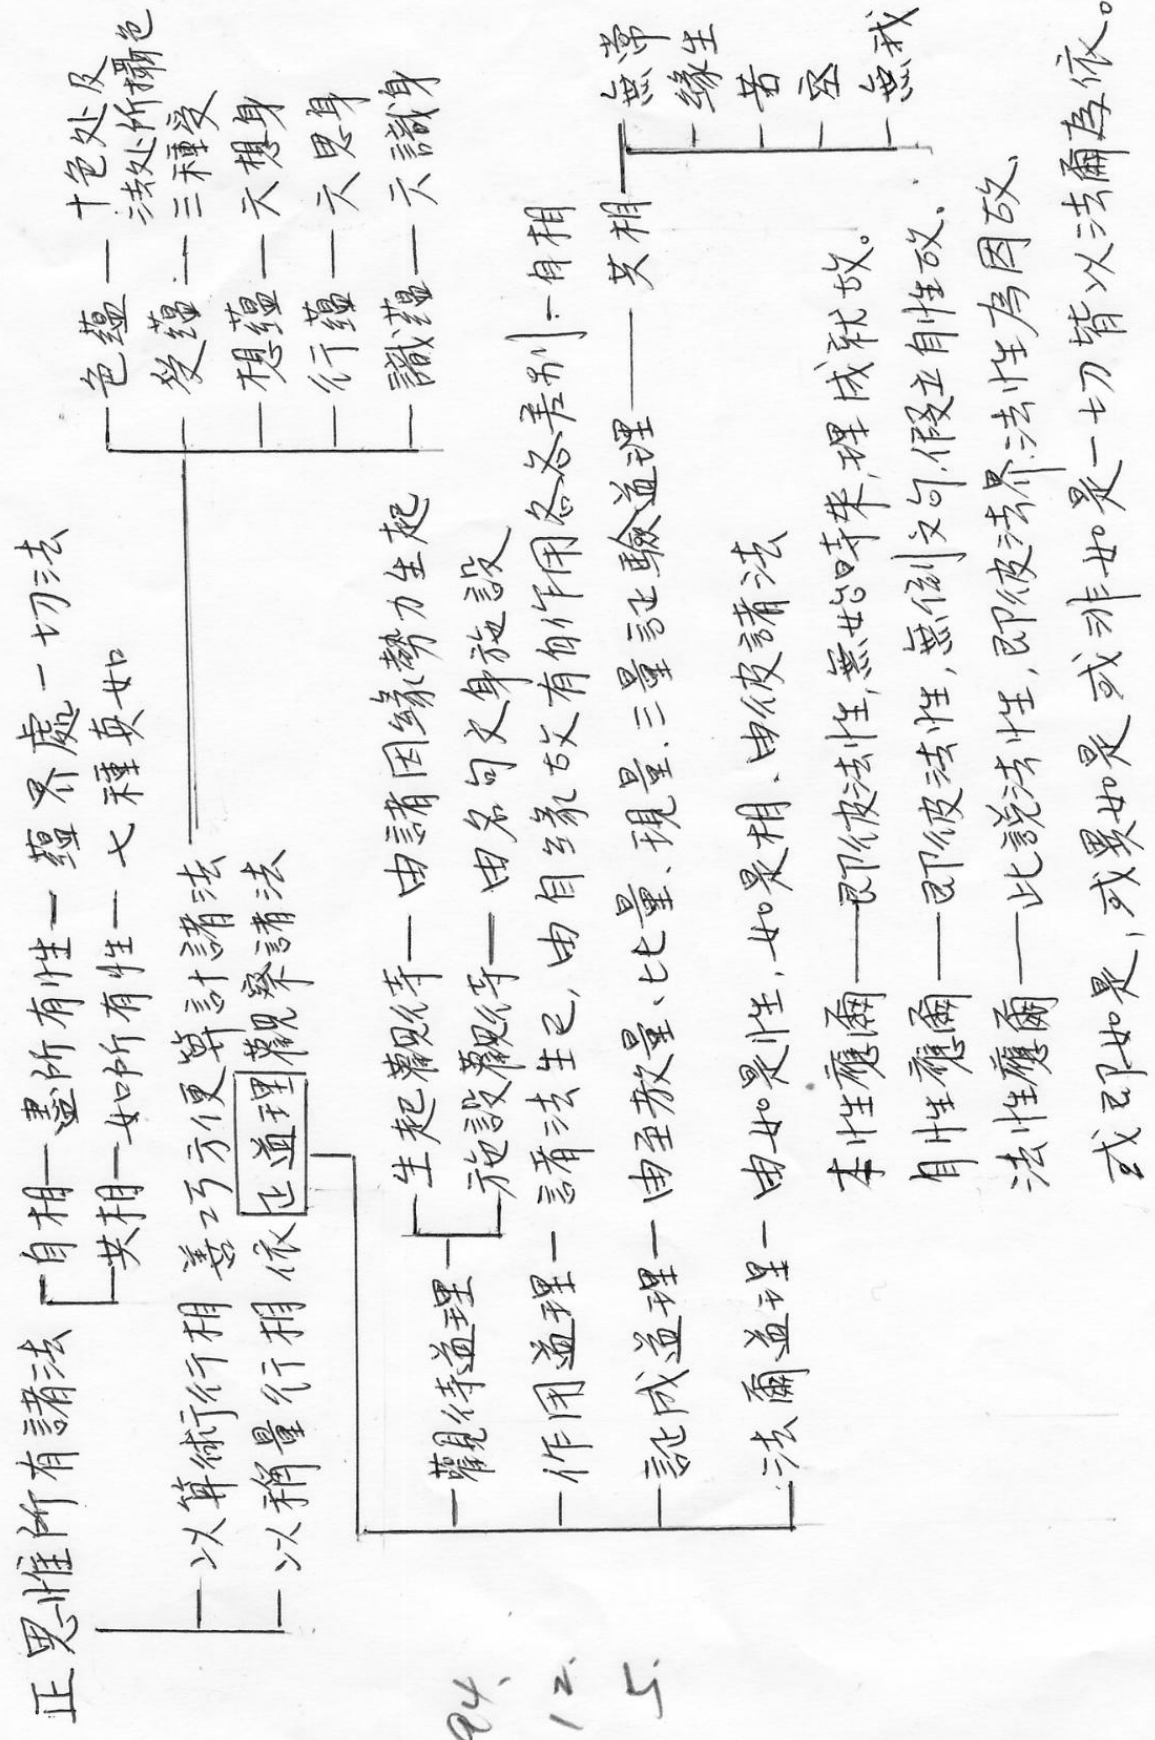 正思惟所有諸法
自相—盡所有性—蘊界處一切法
共相—如所有性—七種真如
以算術行相 善巧方便算計諸法
色蘊—十色处及
法处所攝色
受蘊—三種受
想蘊—六想身
行蘊—六思身
識蘊—六識身
以稱量行相 依正道理觀察諸法
觀待道理
生起觀待—由諸因緣勢力生起
施設觀待—由名句文身施設
作用道理—諸法生已,由自緣故有自作用各各差別—自相
証成道理—由至教量、比量、現量、三量証驗道理—共相
無常
緣生
苦
空
無我
法爾道理—由如是性、如是相、由彼諸法
本性應爾—即彼法性,無始時來,理成就故。
自性應爾—即彼法性,無倒文句,假立自性故、
法性應爾—此說法性,即彼法界法性為因故、
或即如是,或異如是或非如是一切皆以法爾為依。
94.
12.
5.